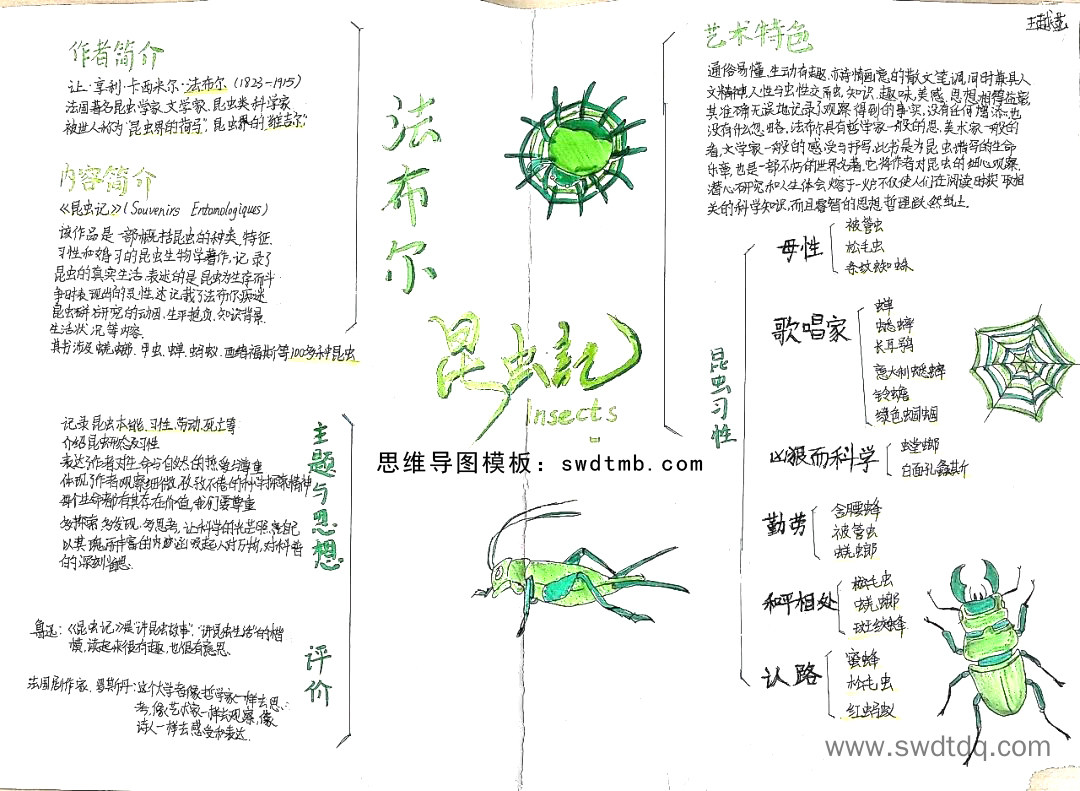 作者简介
让·亨利·卡西米尔·法布尔 (1823-1915)
法国著名昆虫学家、文学家、昆虫类科学家
被世人称为"昆虫界的荷马", 昆虫界的"维吉尔"
内容简介
《昆虫记》(Souvenirs Entomologiques)
该作品是一部概括昆虫的种类、特征、
习性和婚习的昆虫生物学著作, 记录了
昆虫的真实生活, 表述的是昆虫为生存而斗
争时表现出的灵性, 还记载了法布尔痴迷
昆虫研究的动因、生平抱负、知识背景、
生活状况等内容.
其书涉及蜣螂、甲虫、蝉、蚂蚁、西绪福斯等100多种昆虫
记录昆虫本能、习性、劳动、死亡等
介绍昆虫形态及习性
表达了作者对生命与自然的热爱与尊重
体现了作者观察细微、孜孜不倦的科学探索精神
每个生命都有其存在价值, 我们要尊重
多探索, 多发现, 多思考, 让科学的光芒照亮自己
以其瑰丽丰富的内涵唤起人对万物, 对科普
的深刻省思.
主题与思想
鲁迅: 《昆虫记》是"讲昆虫故事", "讲昆虫生活"的楷
模, 读起来很有趣, 也很有意思.
法国剧作家、罗斯丹: 这个大学者像哲学家一样去思
考, 像艺术家一样去观察, 像
诗人一样去感受和表达.
评价
法布尔
昆虫記
Insects
思维导图模板：swdtmb.com
王越
艺术特色
通俗易懂、生动有趣、亦诗情画意的散文笔调, 同时兼具人
文精神, 人性与虫性交融, 知识、趣味、美感、思想相得益彰
其准确无误地记录了观察得到的事实, 没有任何增添, 也
没有什么忽略, 法布尔具有哲学家一般的思、美术家一般的
看, 文学家一般的感受与抒写, 此书是为昆虫谱写的生命
乐章, 也是一部不朽的世界名著. 它将作者对昆虫的细心观察,
潜心研究和人生体会熔于一炉不仅使人们在阅读时获取相
关的科学知识, 而且睿智的思想哲理跃然纸上.
昆虫习性
母性
被管虫
松毛虫
歌唱家
蝉
蟋蟀
长耳鸮
意大利蟋蟀
铃蟾
绿色蝈蝈
凶狠而科学
螳螂
白面孔螽斯
勤劳
被管虫
蜣螂
和平相处
松毛虫
蜣螂
认路
蜜蜂
松毛虫
红蚂蚁
www.swdtdq.com